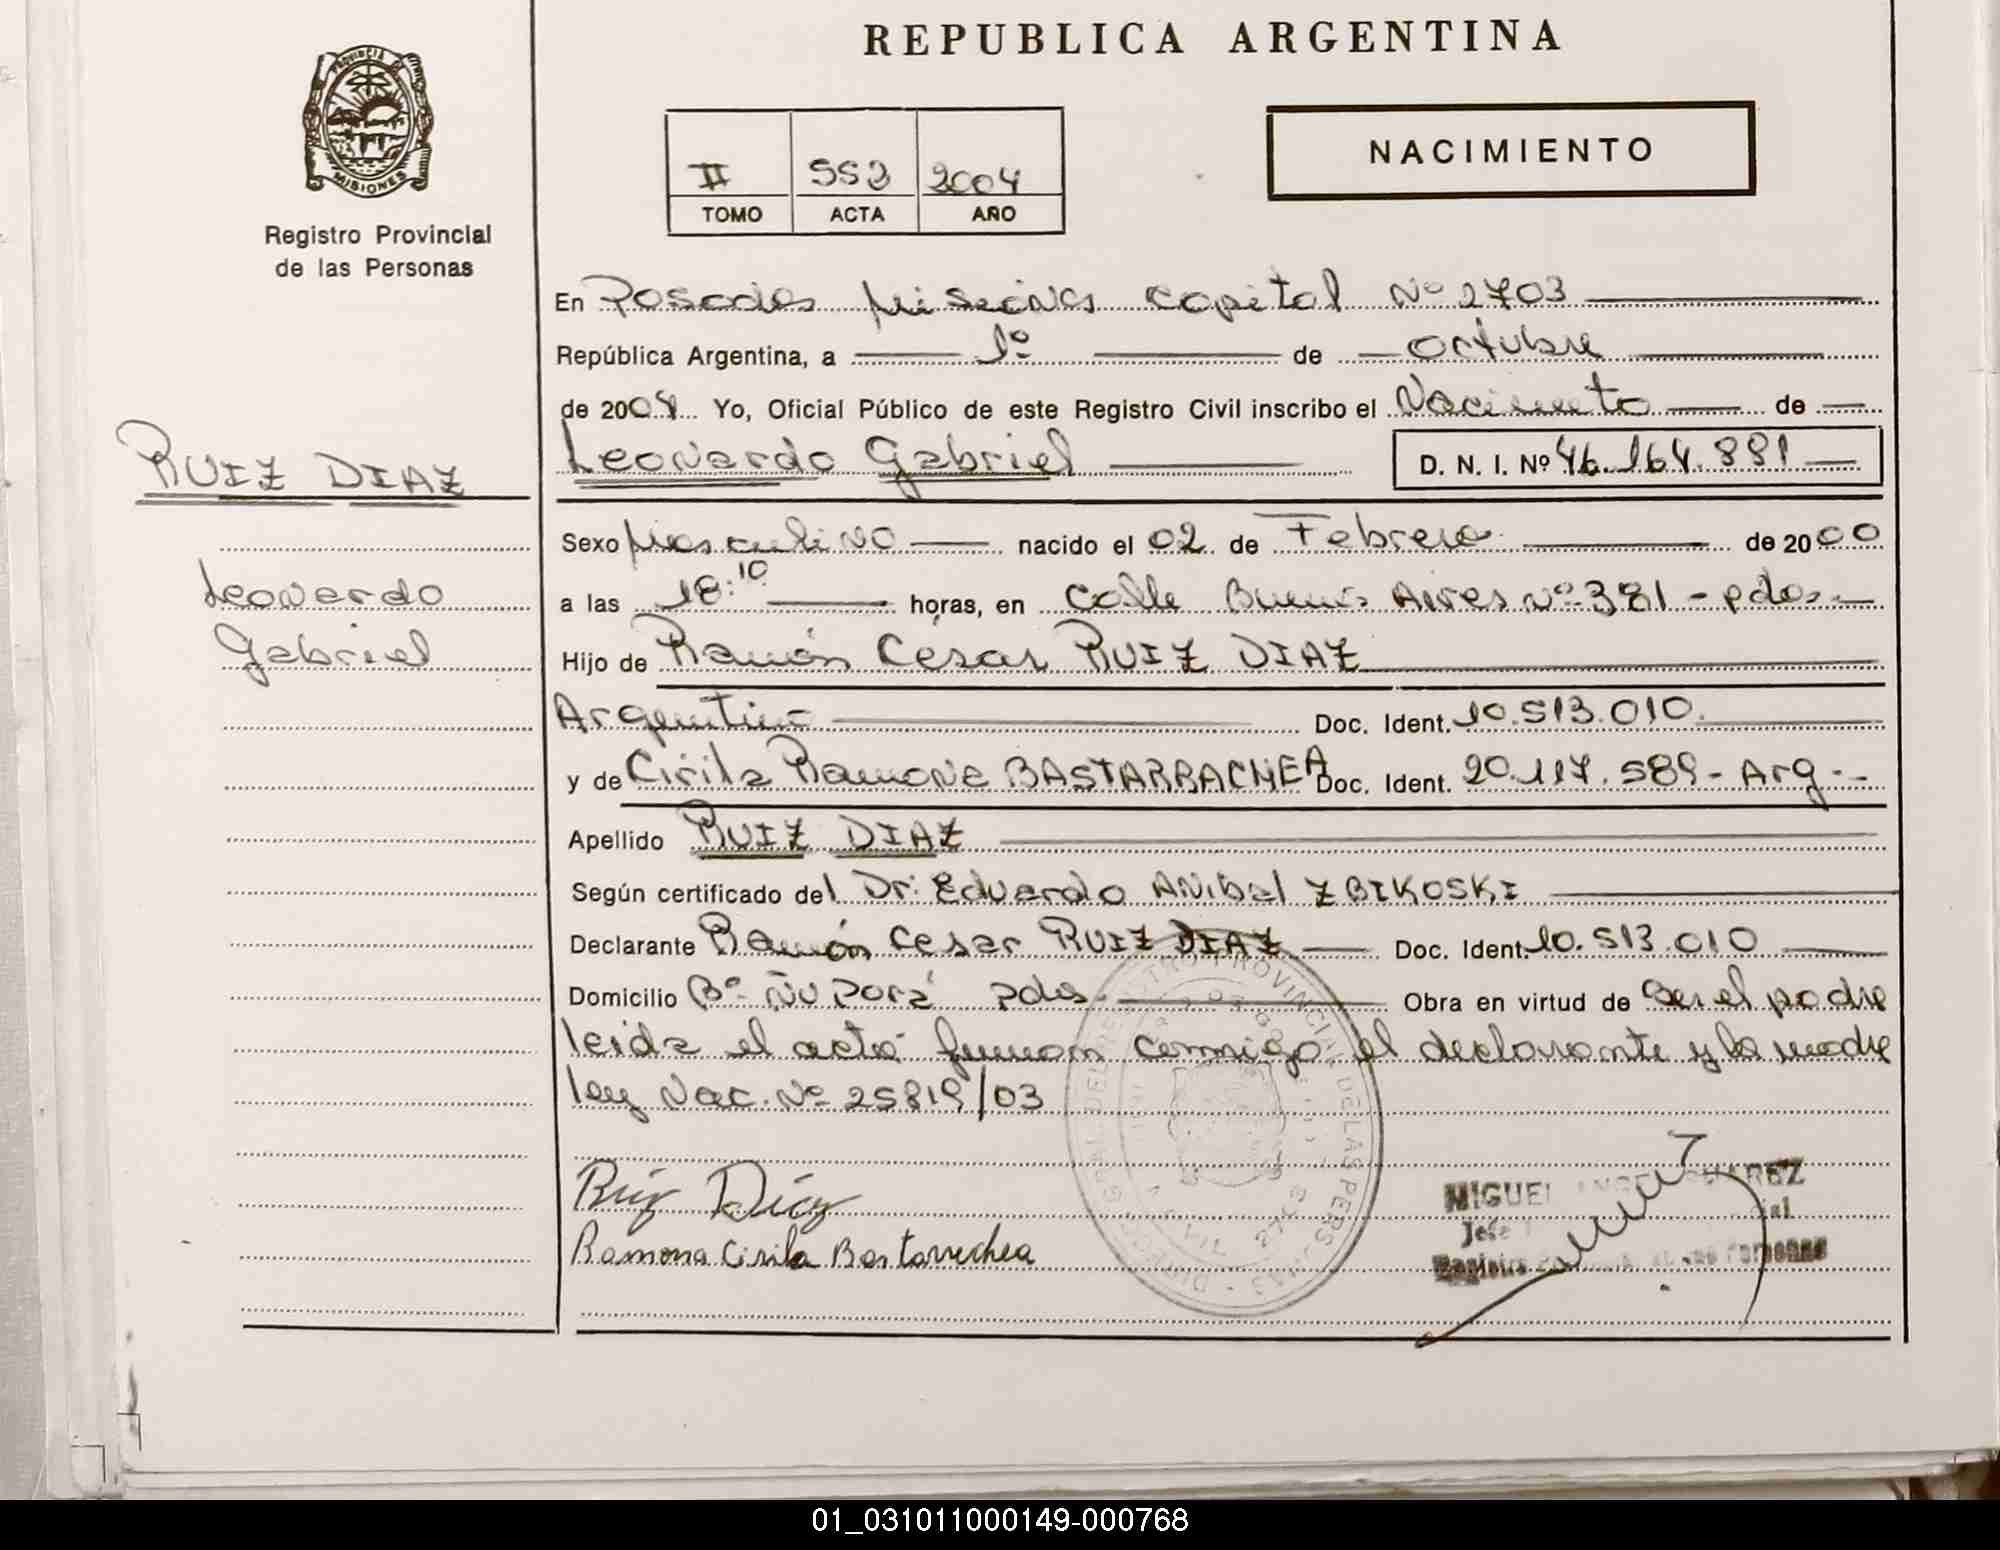 REPUBLICA ARGENTINA
PROVINCIA DE
MISIONES
Registro Provincial
de las Personas
II 552 2004
TOMO ACTA AÑO
NACIMIENTO
En Posadas Misiones Capital Nº 2703
República Argentina, a 1º de Octubre
de 2004 Yo, Oficial Público de este Registro Civil inscribo el Nacimiento de
RUIZ DIAZ
Leonardo Gabriel D. N. I. Nº 46.164.881
Sexo Masculino nacido el 02 de Febrero de 2000
Leonardo
a las 18:10 horas, en Calle Buenos Aires Nº 381 - pdas -
Gabriel
Hijo de Ramón César RUIZ DIAZ
Argentina Doc. Ident. 10.513.010
y de Cirila Ramona BASTARRACHEA Doc. Ident. 20.117.589 - Arg -
Apellido RUIZ DIAZ
Según certificado del Dr. Eduardo Anibal ZBIKOSKI
Declarante Ramón Cesar RUIZ DIAZ Doc. Ident. 10.513.010
Domicilio Bº Ñu Porá pdas Obra en virtud de Ser el padre
leida el acta firman conmigo el declarante y la madre
ley Nac. Nº 25819/03
Ruiz Diaz
Ramona Cirila Bastarrechea
MIGUEL ANGEL SUAREZ
Jefe
Registro Personas
01_031011000149-000768